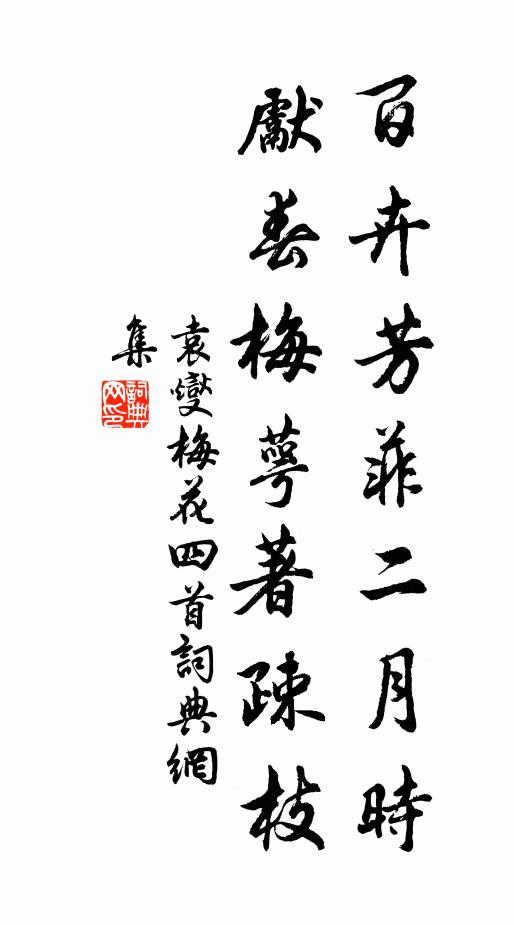 百卉芳菲二月時
獻春梅萼著疎枝
袁燮梅花四首詞典網
集
詞典网印